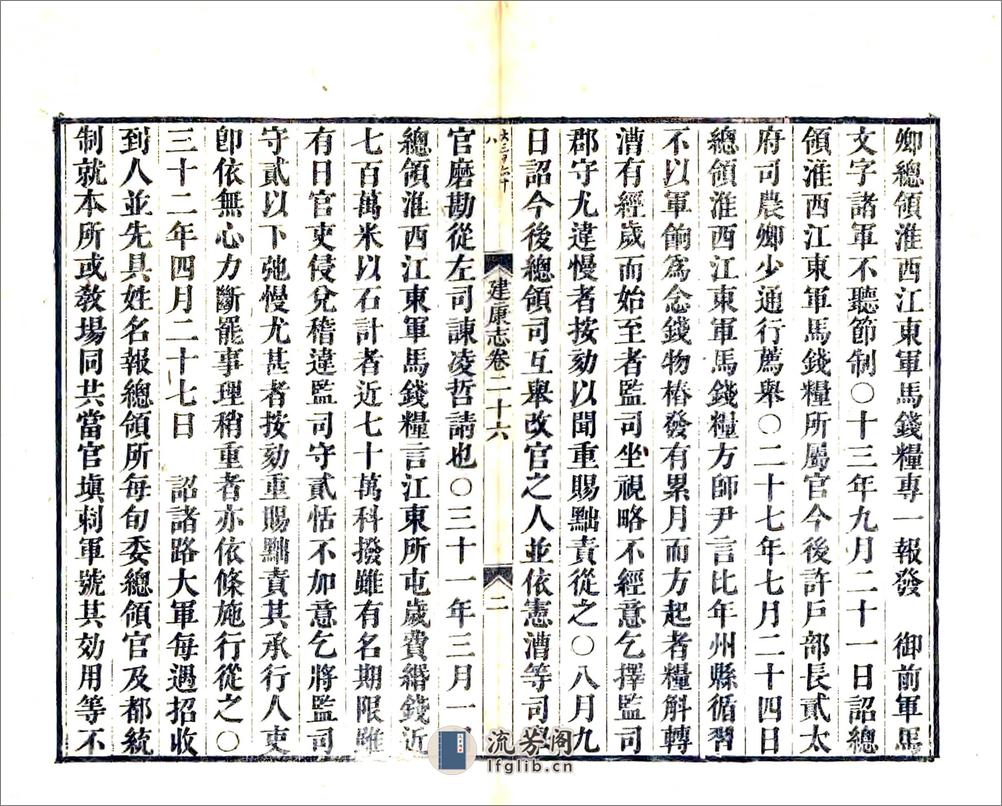 卿總領淮西江東軍馬錢糧專一報發　御前軍馬
文字諸軍不聽節制○十三年九月二十一日詔總
領淮西江東軍馬錢糧所屬官今後許戶部長貳太
府司農卿少通行薦舉○二十七年七月二十四日
總領淮西江東軍馬錢糧方師尹言比年州縣循習
不以軍餉爲念錢物樁發有累月而方起者糧斛轉
漕有經歲而始至者監司坐視略不經意乞擇監司
郡守尤違慢者按劾以聞重賜黜責從之○八月九
日詔今後總領司互舉改官之人並依憲漕等司以
建康志卷二十六
二
官磨勘從左司諫凌哲請也○三十一年三月一
總領淮西江東軍馬錢糧言江東所屯歲費緡錢近
七百萬米以石計者近七十萬科撥雖有名期限雖
有日官吏侵兌稽違監司守貳恬不加意乞將監司
守貳以下弛慢尤甚者按劾重賜黜責其承行人吏
卽依無心力斷罷事理稍重者亦依條施行從之○
三十二年四月二十七日　詔諸路大軍每遇招收
到人並先具姓名報總領所每旬委總領官及都統
制就本所或敎場同共當官塡刺軍號其効用等不
流芳閣
lfglib.cn